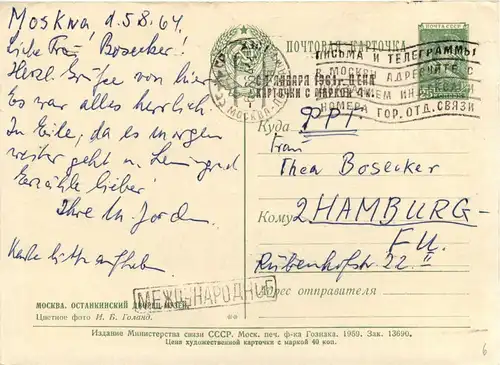 Moskwa, d. 5.8.64.
Liebe Frau Bosecker!
Herzl. Grüße von hier
Es war alles herrlich.
In Eile, da es morgen
weiter geht n. Leningrad
Erzähle lieber!
Ihre M. Jordan.
Karte bitte aufheben
МОСКВА. ОСТАНКИНСКИЙ ДВОРЕЦ-МУЗЕЙ.
Цветное фото И. Б. Голанд.
МЕЖДУНАРОДНОЕ
ПОЧТА СССР
ПОЧТОВАЯ КАРТОЧКА
ПИСЬМА И ТЕЛЕГРАММЫ
В МОСКВУ АДРЕСУЙТЕ С
НОМЕРА ГОР. ОТД. СВЯЗИ
С 1 ЯНВАРЯ 1961 г. ЦЕНА
КАРТОЧКИ С МАРКОЙ 4 к.
МОСКВА
Куда ФРГ
Frau
Thea Bosecker
Кому 2 HAMBURG-
FU.
Rübenhofstr. 22 II
Адрес отправителя
Издание Министерства связи СССР. Моск. печ. ф-ка Гознака. 1959. Зак. 13690.
Цена художественной карточки с маркой 40 коп.
6